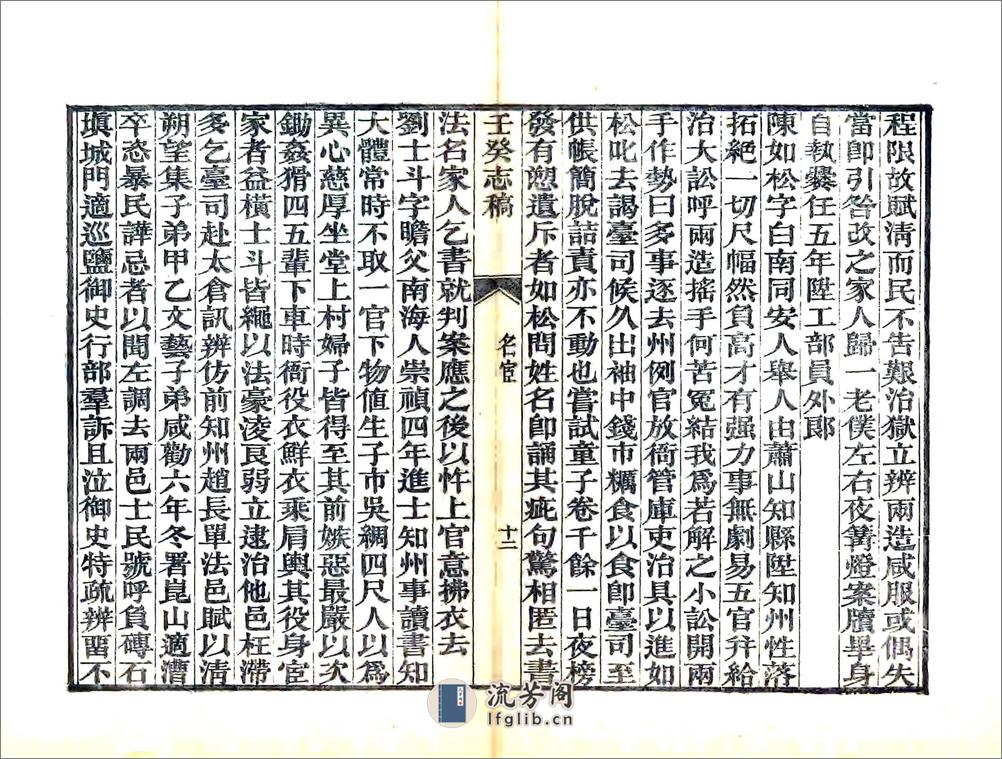 程限故賦清而民不告艱治獄立辨兩造咸服或偶失
當卽引咎改之家人歸一老僕左右夜篝燈案牘畢身
自執爨任五年陞工部員外郞
陳如松字白南同安人舉人由蕭山知縣陞知州性落
拓絕一切尺幅然負高才有强力事無劇易五官幷給
治大訟呼兩造搖手何苦冤結我爲若解之小訟開兩
手作勢曰多事逐去州例官放衙管庫吏治具以進如
松叱去謁臺司候久出袖中錢市糲食以食卽臺司至
供帳簡脫詰責亦不動也嘗試童子卷千餘一日夜榜
發有愬遺斥者如松問姓名卽誦其疵句驚相匿去書
壬癸志稿
名宦
十二
法名家人乞書就判案應之後以忤上官意拂衣去
劉士斗字瞻父南海人崇禎四年進士知州事讀書知
大體常時不取一官下物値生子市吳綢四尺人以爲
異心慈厚坐堂上村婦子皆得至其前嫉惡最嚴以次
鋤姦猾四五輩下車時衙役衣鮮衣乘肩輿其役身宦
家者益橫士斗皆繩以法豪淩良弱立逮治他邑枉滯
多乞臺司赴太倉訊辨仿前知州趙長單法邑賦以清
朔望集子弟甲乙文藝子弟咸勸六年冬署崑山適漕
卒恣暴民譁忌者以聞左調去兩邑士民號呼負磚石
塡城門適巡鹽御史行部羣訴且泣御史特疏辨畱不
流芳阁
lfglib.cn